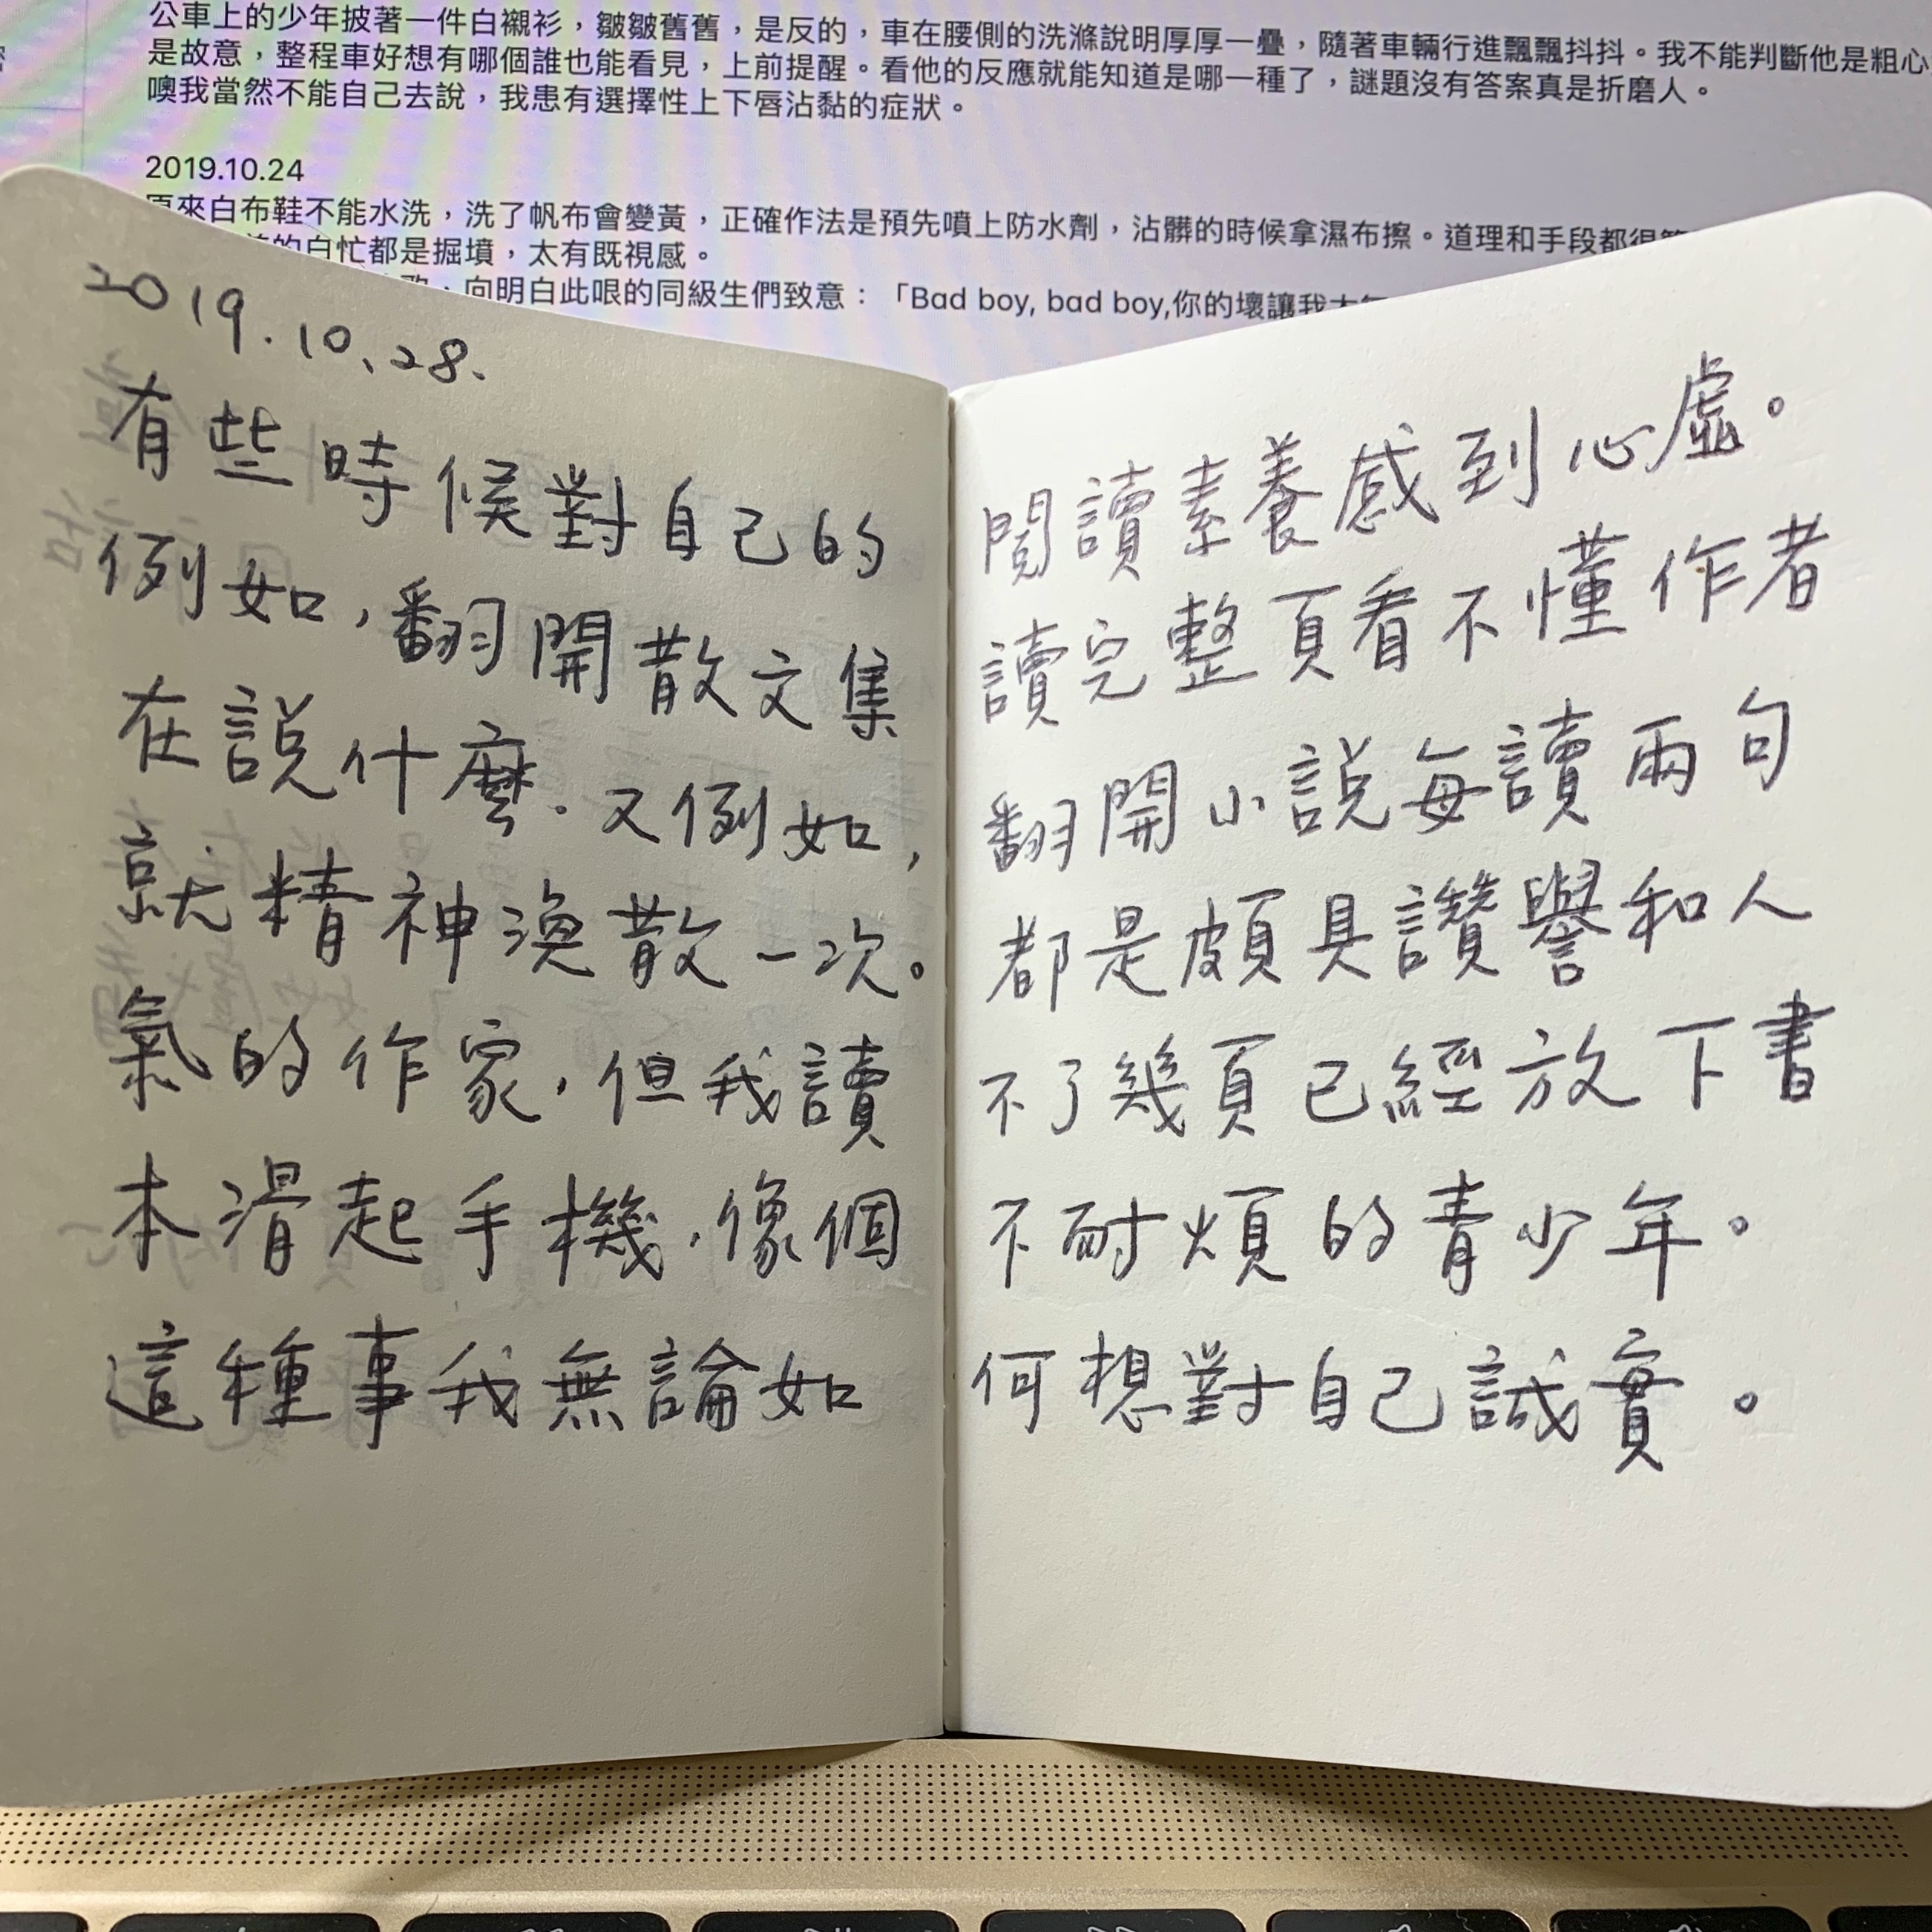 公車上的少年披著一件白襯衫，皺皺舊舊，是反的，車在腰側的洗滌說明厚厚一疊，隨著車輛行進飄飄抖抖。我不能判斷他是粗心
是故意，整程車好想有哪個誰也能看見，上前提醒。看他的反應就能知道是哪一種了，謎題沒有答案真是折磨人。
噢我當然不能自己去說，我患有選擇性上下唇沾黏的症狀。
2019.10.24
原來白布鞋不能水洗，洗了帆布會變黃，正確作法是預先噴上防水劑，沾髒的時候拿濕布擦。道理和手段都很
的白忙都是掘墳，太有既視感。
向明白此哏的同級生們致意：「Bad boy, bad boy,你的壞讓我
2019.10.28.
有些時候對自己的閱讀素養感到心虛。
例如，翻開散文集讀完整頁看不懂作者
在說什麼．又例如，翻開小說每讀兩句
就精神渙散一次。都是頗具讚譽和人
氣的作家，但我讀不了幾頁已經放下書
本滑起手機，像個不耐煩的青少年。
這種事我無論如何想對自己誠實。